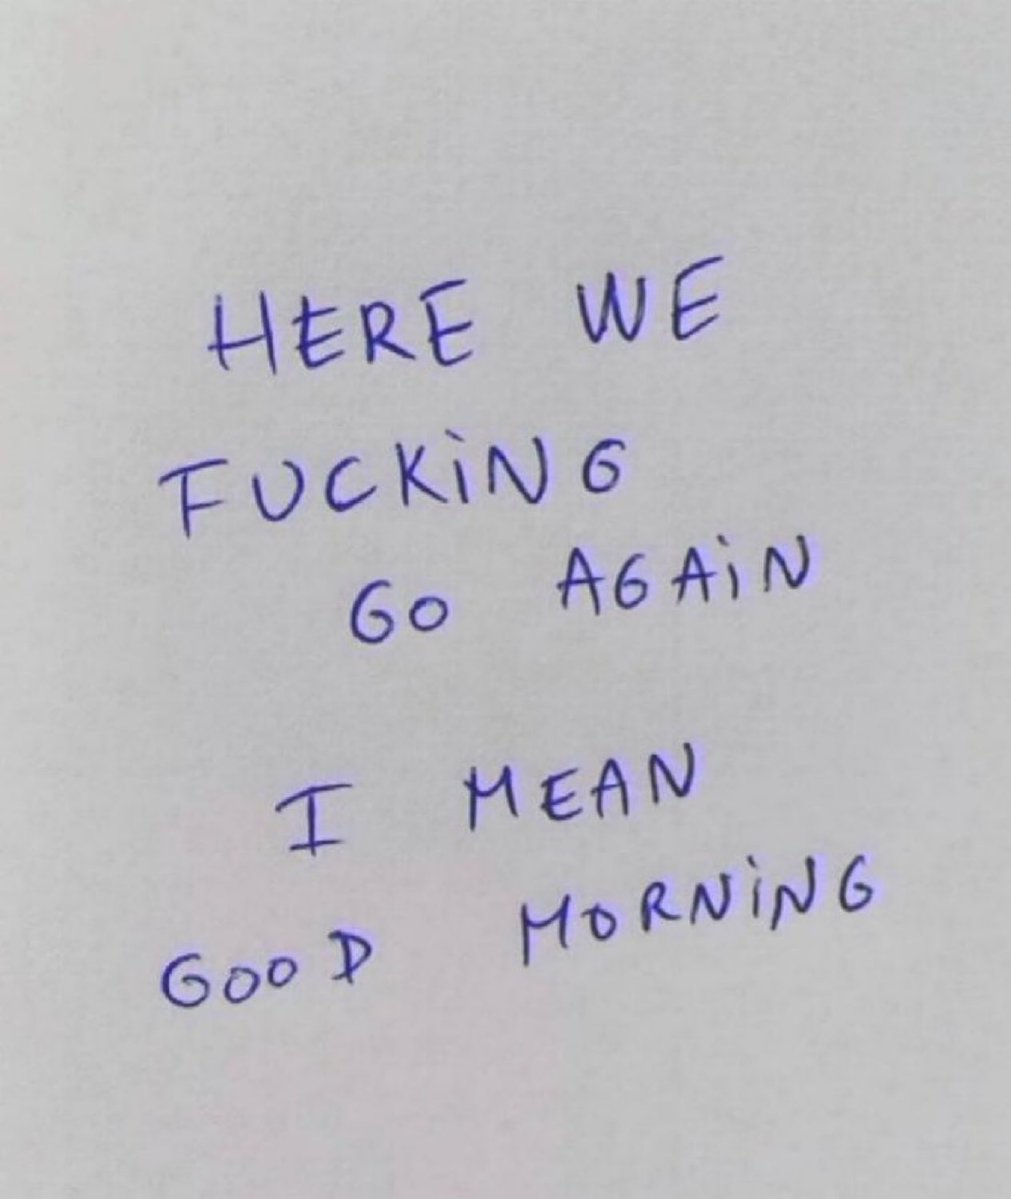 HERE WE
FUCKiNG
GO AGAiN
I MEAN
GOOD MORNiNG